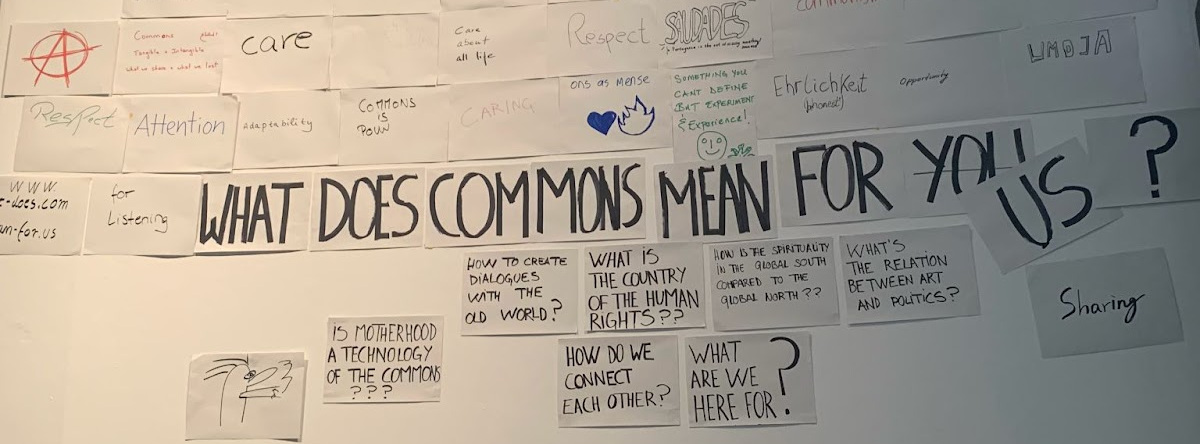 Commons
Tangible + Intangible
What we share + what we lost
care
Care
about
all life
Respect
SAUDADES
Respect
Attention
Adaptability
COMMONS
IS
POUW
CARING
ons as mense
SOMETHING YOU
CANT DEFINE
BUT EXPERIMENT
& Experience!
Ehrlichkeit
(honest)
Opportunity
UMOJA
www
e-does.com
an-for.us
for
Listening
WHAT DOES COMMONS MEAN FOR YOU ?
US
HOW TO CREATE
DIALOGUES
WITH THE
OLD WORLD?
WHAT IS
THE COUNTRY
OF THE HUMAN
RIGHTS??
HOW IS THE SPIRITUALITY
IN THE GLOBAL SOUTH
COMPARED TO THE
GLOBAL NORTH??
WHAT'S
THE RELATION
BETWEEN ART
AND POLITICS?
Sharing
IS MOTHERHOOD
A TECHNOLOGY
OF THE COMMONS
???
HOW DO WE
CONNECT
EACH OTHER?
WHAT
ARE WE
HERE FOR?